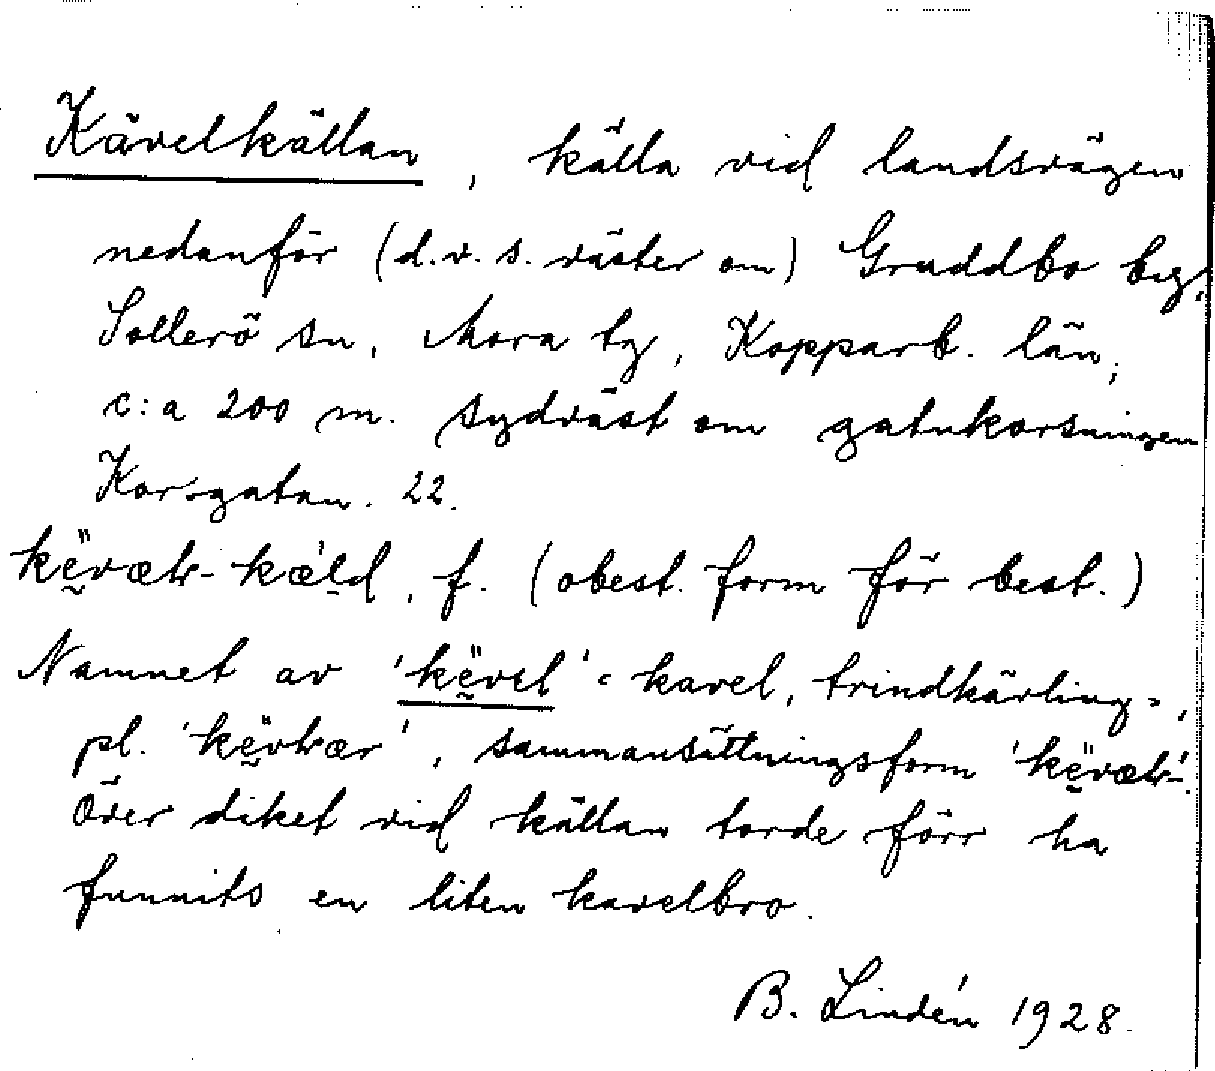 Kävelkällan, källa vid landsvägen
nedanför (d.v.s. väster om) Gruddbo by,
Sollerö sn, Mora tg, Kopparb. län,
c:a 200 m. sydväst om gatukorsningen
Korsgatan. 22.
f. (obest. form för best.)
Namnet av 'kḛ̈vel' = kavel, trindkärling-,
pl. sammansättningsform
Över diket vid källan torde förr ha
funnits en liten kavelbro.
B. Lindén 1928.